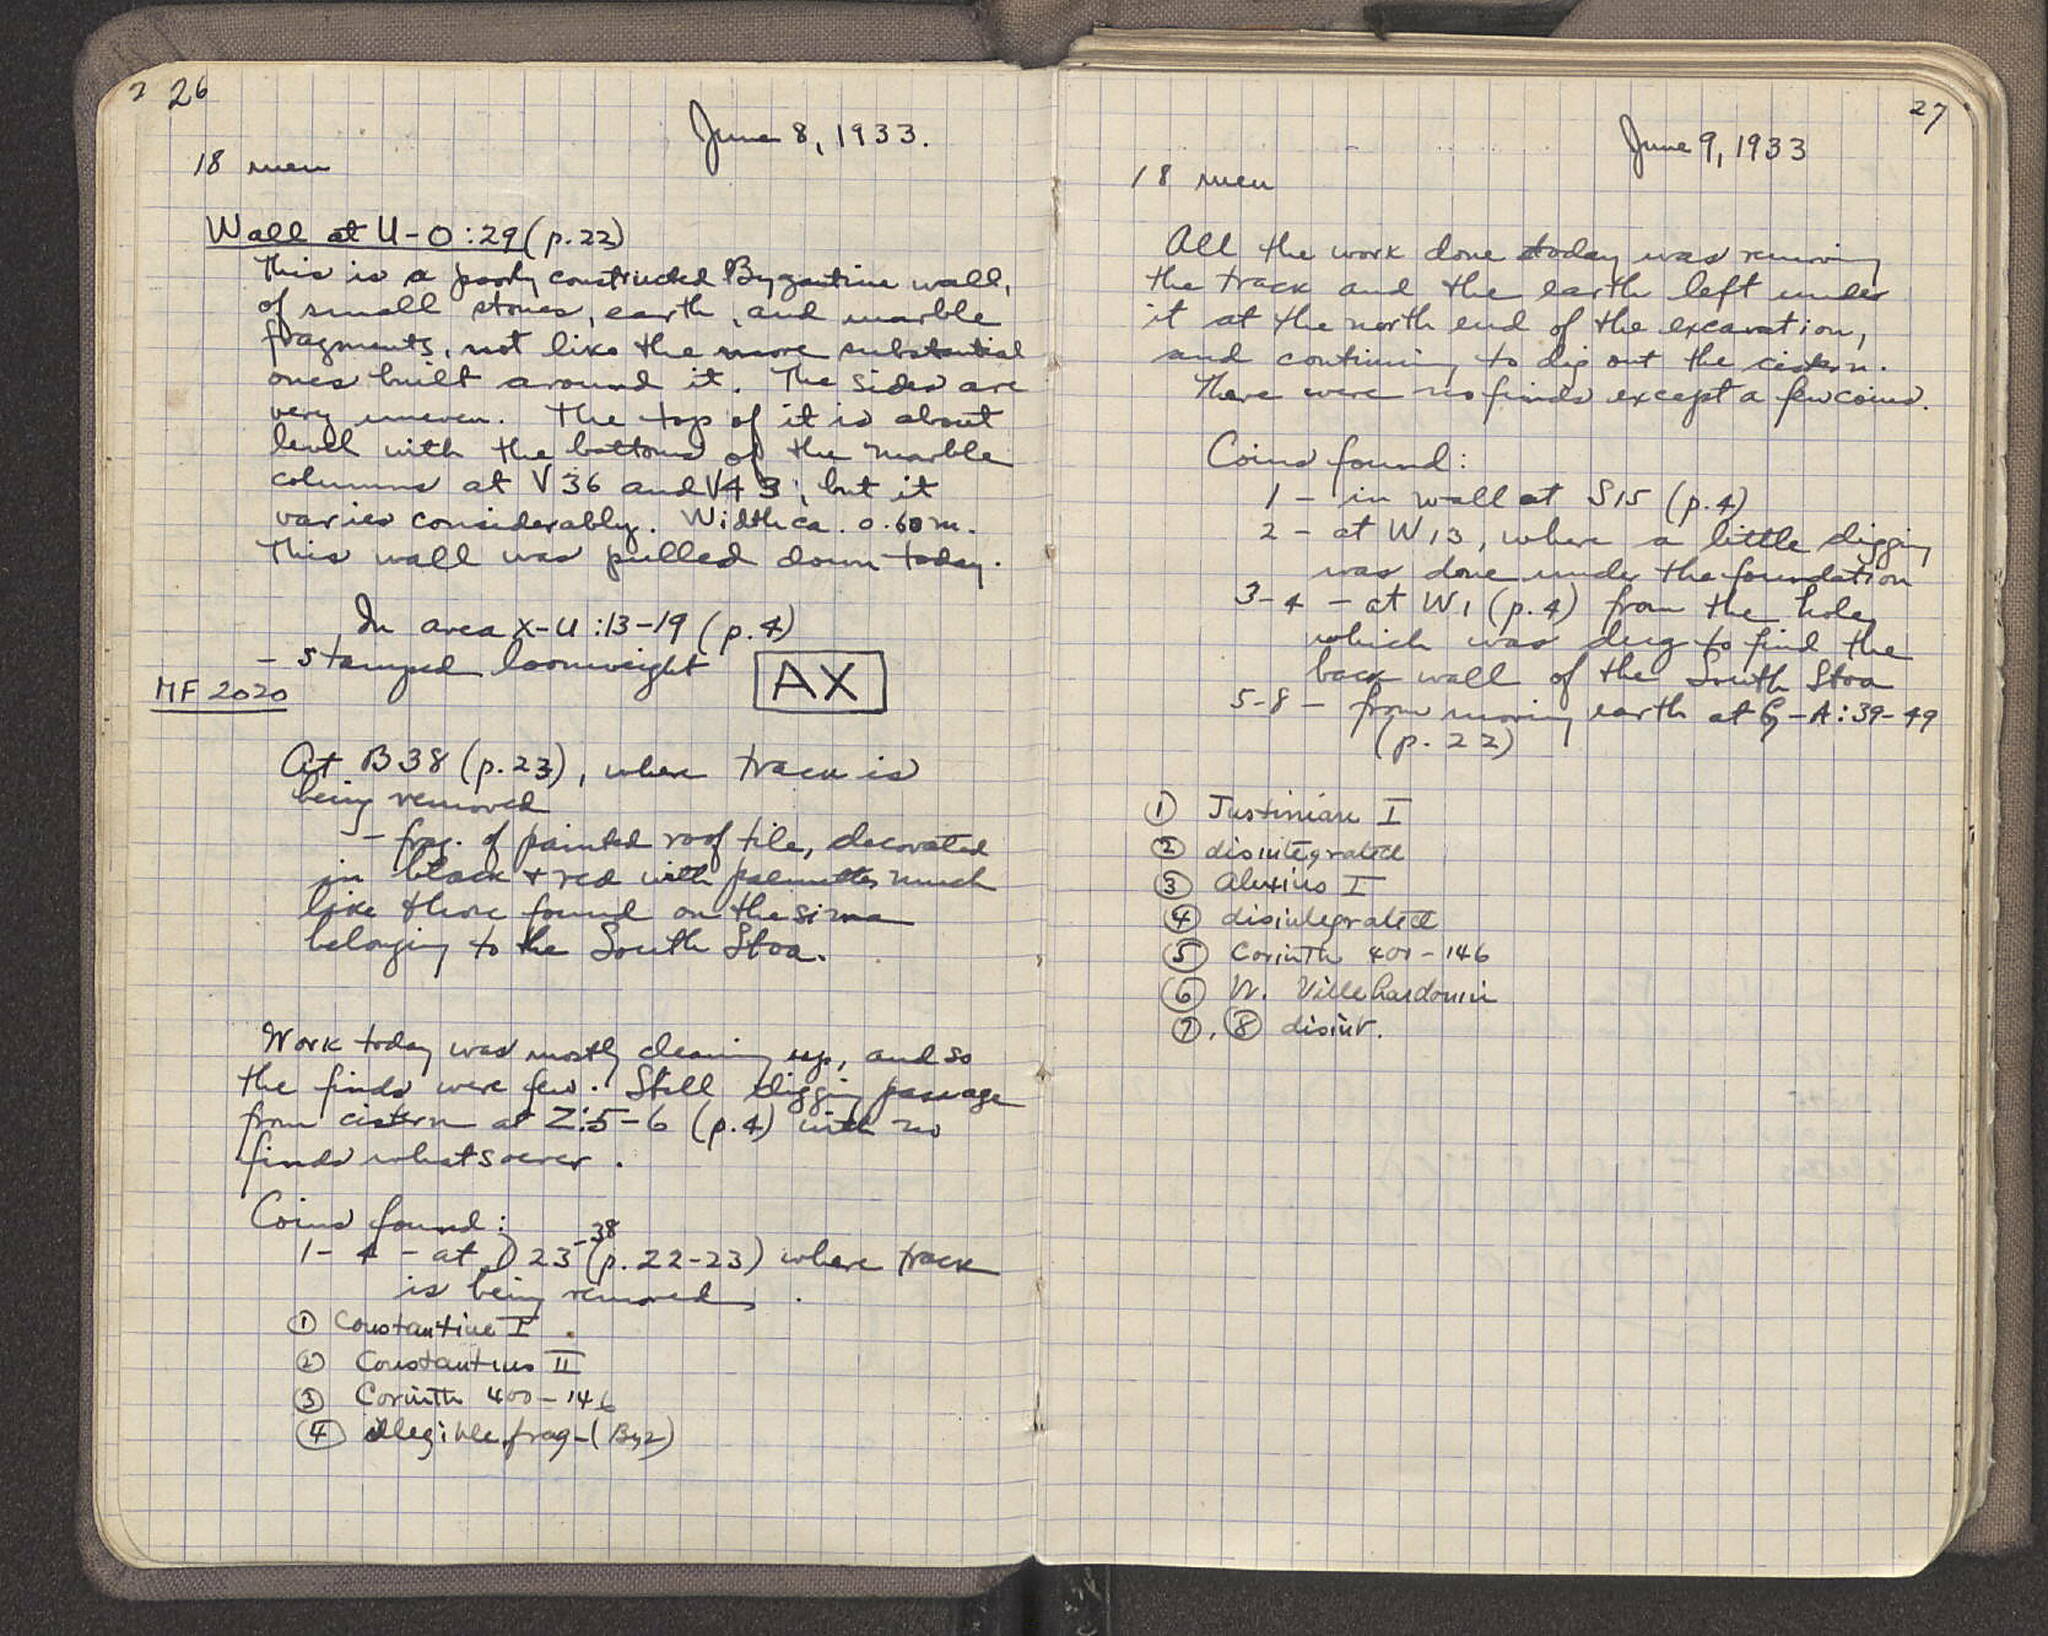 26
June 8, 1933.
18 men
Wall at U-O:29 (p.22)
This is a poorly constructed Byzantine wall,
of small stones, earth, and marble
fragments, not like the more substantial
ones built around it. The sides are
very uneven. The top of it is about
level with the bottoms of the marble
columns at V36 and V43, but it
varies considerably. Width ca. 0.60 m.
This wall was pulled down today.
In area X-U:13-19 (p.4)
- stamped loomweight
AX
MF 2020
At B38 (p.23), where track is
being removed
- frag. of painted roof tile, decorated
in black + red with palmettes much
like those found on the sima
belonging to the South Stoa.
Work today was mostly cleaning up, and so
the finds were few. Still digging passage
from cistern at Z:5-6 (p.4) with no
finds whatsoever.
Coins found:
1-4 - at D23-38 (p.22-23) where track
is being removed.
① Constantine I
② Constantius II
③ Corinth 400-146
④ illegible frag-(Byz)
27
June 9, 1933
18 men
All the work done today was removing
the track and the earth left under
it at the north end of the excavation,
and continuing to dig out the cistern.
There were no finds except a few coins.
Coins found:
1 - in wall at S15 (p.4)
2 - at W13, where a little digging
was done under the foundation
3-4 - at W1 (p.4) from the hole
which was dug to find the
back wall of the South Stoa
5-8 - from moving earth at -A:39-49
(p.22)
① Justinian I
② disintegrated
③ Alexius I
④ disintegrated
⑤ Corinth 400-146
⑥ W. Villehardouin
⑦, ⑧ disint.